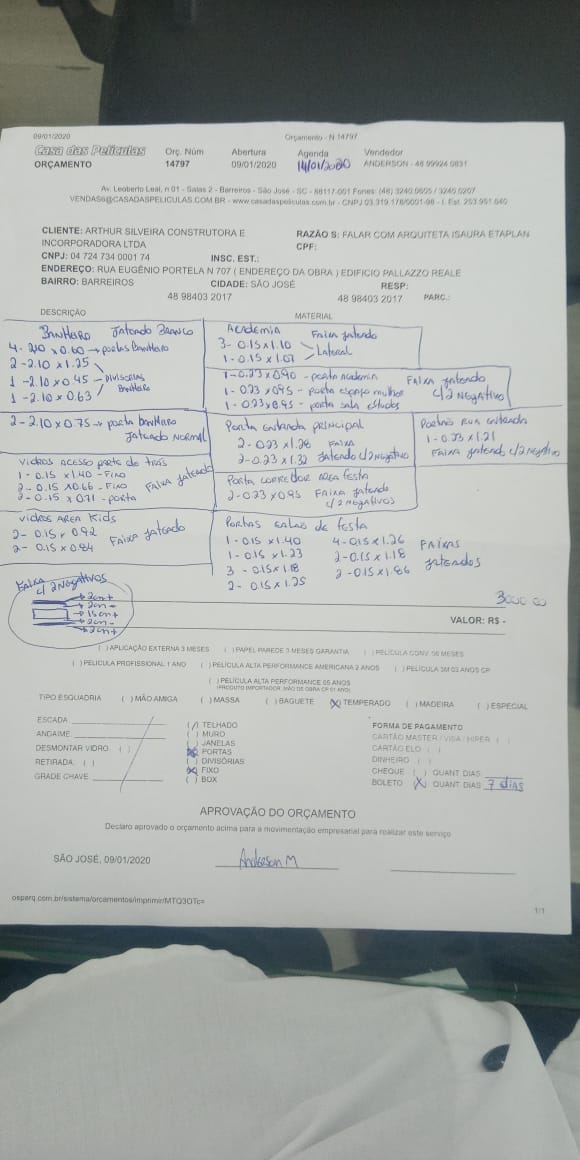 09/01/2020 Orçamento - N 14797
Casa das Películas Orç. Núm Abertura Agenda Vendedor
ORÇAMENTO 14797 09/01/2020 14/01/2020 ANDERSON - 48 99924 0831
Av. Leoberto Leal, n 01 - Salas 2 - Barreiros - São José - SC - 88117-001 Fones: (48) 3240.0605 / 3240.0207
VENDAS6@CASADASPELICULAS.COM.BR - www.casadaspeliculas.com.br - CNPJ 03.319.178/0001-98 - I. Est. 253.951.640
CLIENTE: ARTHUR SILVEIRA CONSTRUTORA E RAZÃO S: FALAR COM ARQUITETA ISAURA ETAPLAN
INCORPORADORA LTDA CPF:
CNPJ: 04 724 734 0001 74 INSC. EST.:
ENDEREÇO: RUA EUGÊNIO PORTELA N 707 ( ENDEREÇO DA OBRA ) EDIFICIO PALLAZZO REALE
BAIRRO: BARREIROS CIDADE: SÃO JOSÉ RESP:
48 98403 2017 48 98403 2017 PARC.:
DESCRIÇÃO MATERIAL
Banheiro Jateado Branco
4 - 2.10 x 0.60 → portas Banheiro
2 - 2.10 x 1.25
1 - 2.10 x 0.45 - Divisorias
1 - 2.10 x 0.63 Banheiro
Academia Faixa jateado
3 - 0.15 x 1.10
1 - 0.15 x 1.07 Lateral
1 - 0.23 x 0.90 - porta Academia Faixa jateado
1 - 0.23 x 0.95 - porta espaço mulher c/2 Negativo
1 - 0.23 x 0.95 - porta sala estudos
2 - 2.10 x 0.75 → porta banheiro
Jateado Normal
Porta entrada principal
2 - 0.23 x 1.28 Faixa
2 - 0.23 x 1.32 Jateado c/2 negativo
Portão Rua entrada
1 - 0.23 x 1.21
Faixa jateado c/2 negativo
Vidros acesso parte de trás
1 - 0.15 x 1.40 - Fixo
2 - 0.15 x 0.66 - Fixo Faixa jateado
2 - 0.15 x 0.71 - porta
Porta corredor area festa
2 - 0.23 x 0.95 Faixa jateado
c/2 negativos
Vidros Area Kids
2 - 0.15 x 0.92 Faixa jateado
2 - 0.15 x 0.84
Portas salao de festa
1 - 0.15 x 1.40 4 - 0.15 x 1.26 Faixas
1 - 0.15 x 1.23 2 - 0.15 x 1.18
3 - 0.15 x 1.18 2 - 0.15 x 1.86 jateados
2 - 0.15 x 1.25
Faixa
c/ 2 Negativos
→ 2cm +
→ 2cm -
→ 15cm +
→ 2cm -
→ 2cm +
3000 00
VALOR: R$ -
( ) APLICAÇÃO EXTERNA 3 MESES ( ) PAPEL PAREDE 3 MESES GARANTIA ( ) PELÍCULA CONV. 06 MESES
( ) PELICULA PROFISSIONAL 1 ANO ( ) PELÍCULA ALTA PERFORMANCE AMERICANA 2 ANOS ( ) PELÍCULA 3M 03 ANOS CP
( ) PELÍCULA ALTA PERFORMANCE 05 ANOS
(PRODUTO IMPORTADOR (MÃO DE OBRA CP 01 ANO)
TIPO ESQUADRIA ( ) MÃO AMIGA ( ) MASSA ( ) BAGUETE (X) TEMPERADO ( ) MADEIRA ( ) ESPECIAL
ESCADA
ANDAIME
DESMONTAR VIDRO ( )
RETIRADA ( )
GRADE CHAVE
(/) TELHADO
( ) MURO
( ) JANELAS
(X) PORTAS
( ) DIVISÓRIAS
(X) FIXO
( ) BOX
FORMA DE PAGAMENTO
CARTÃO MASTER / VISA / HIPER ( )
CARTÃO ELO ( )
DINHEIRO ( )
CHEQUE ( ) QUANT DIAS
BOLETO (X) QUANT DIAS 7 dias
APROVAÇÃO DO ORÇAMENTO
Declaro aprovado o orçamento acima para a movimentação empresarial para realizar este serviço
SÃO JOSÉ, 09/01/2020 Anderson M
osparq.com.br/sistema/orcamentos/imprimir/MTQ3OTc= 1/1